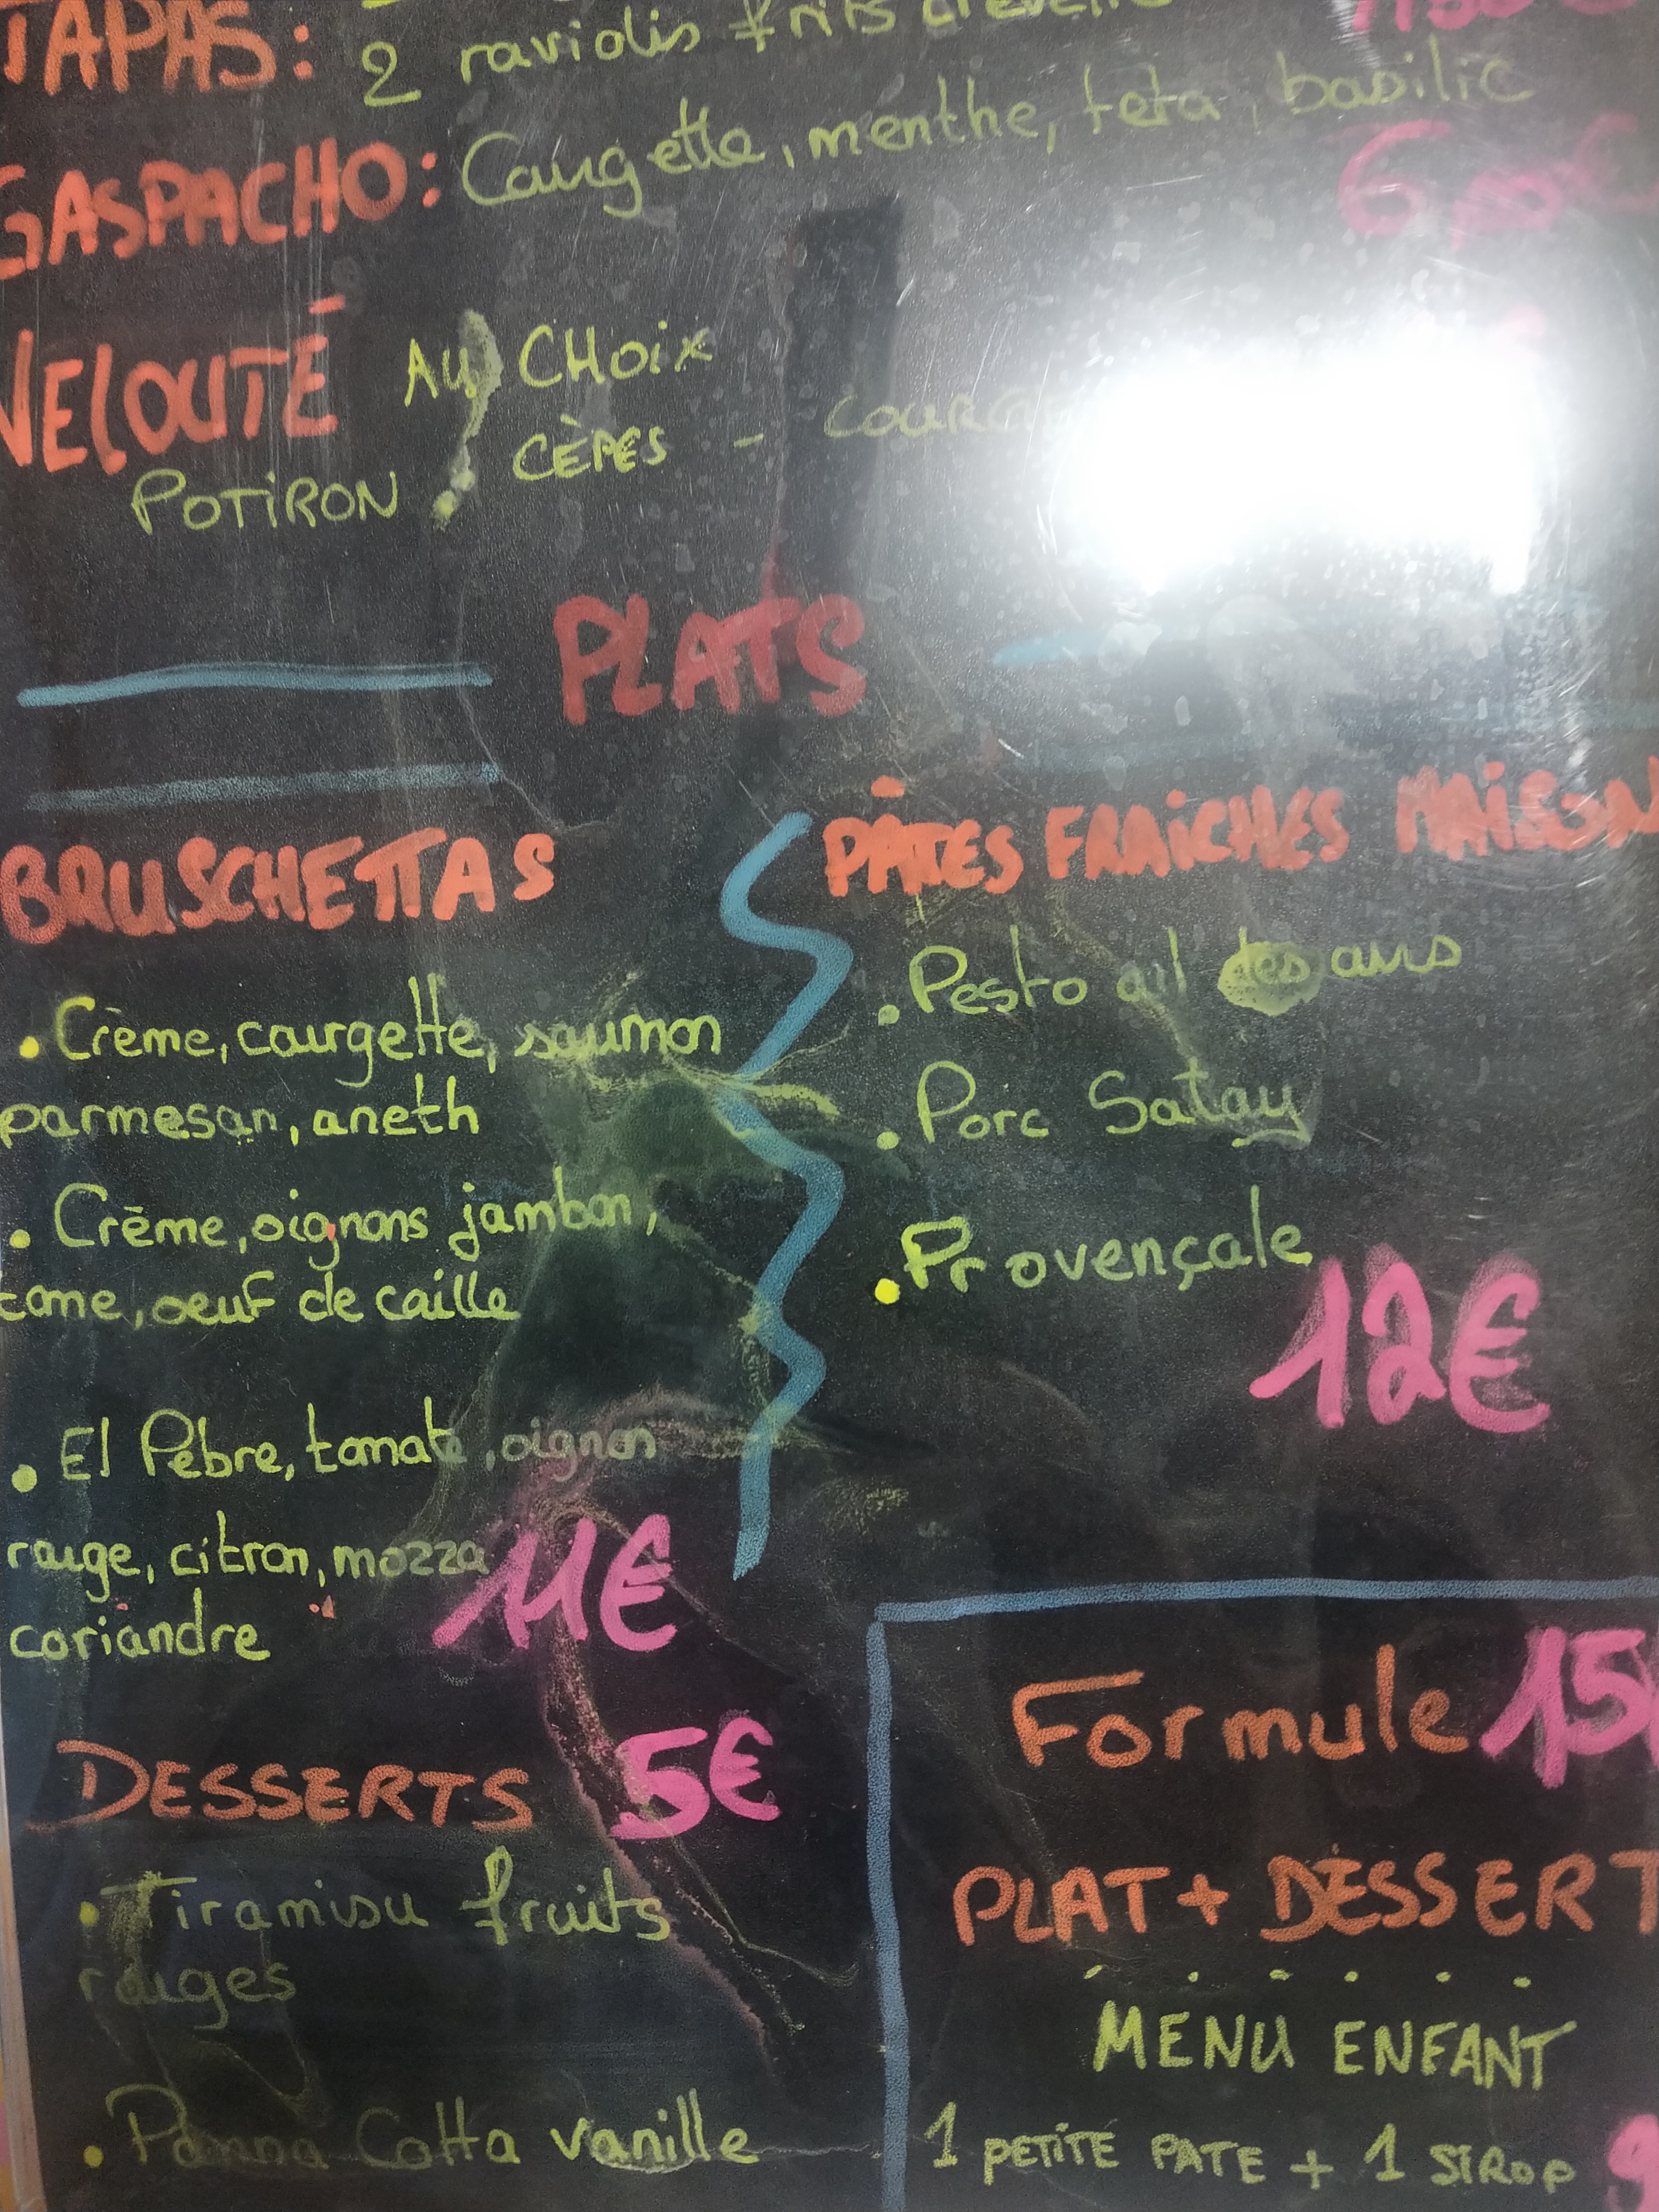 TAPAS: 2 raviolis frits
GASPACHO: Courgette, menthe, feta, basilic
6,00€
VELOUTÉ AU CHOIX
POTIRON, CÈPES -
PLATS
BRUSCHETTAS
• Crème, courgette, saumon
parmesan, aneth
• Crème, oignons jambon,
tome, oeuf de caille
• El Pebre, tomate, oignon
rouge, citron, mozza
coriandre
11€
PÂTES FRAICHES MAISON
• Pesto ail des ours
• Porc Satay
• Provençale
12€
DESSERTS 5€
• Tiramisu fruits
rouges
• Panna Cotta vanille
Formule 15
PLAT + DESSERT
MENU ENFANT
1 PETITE PATE + 1 SIROP